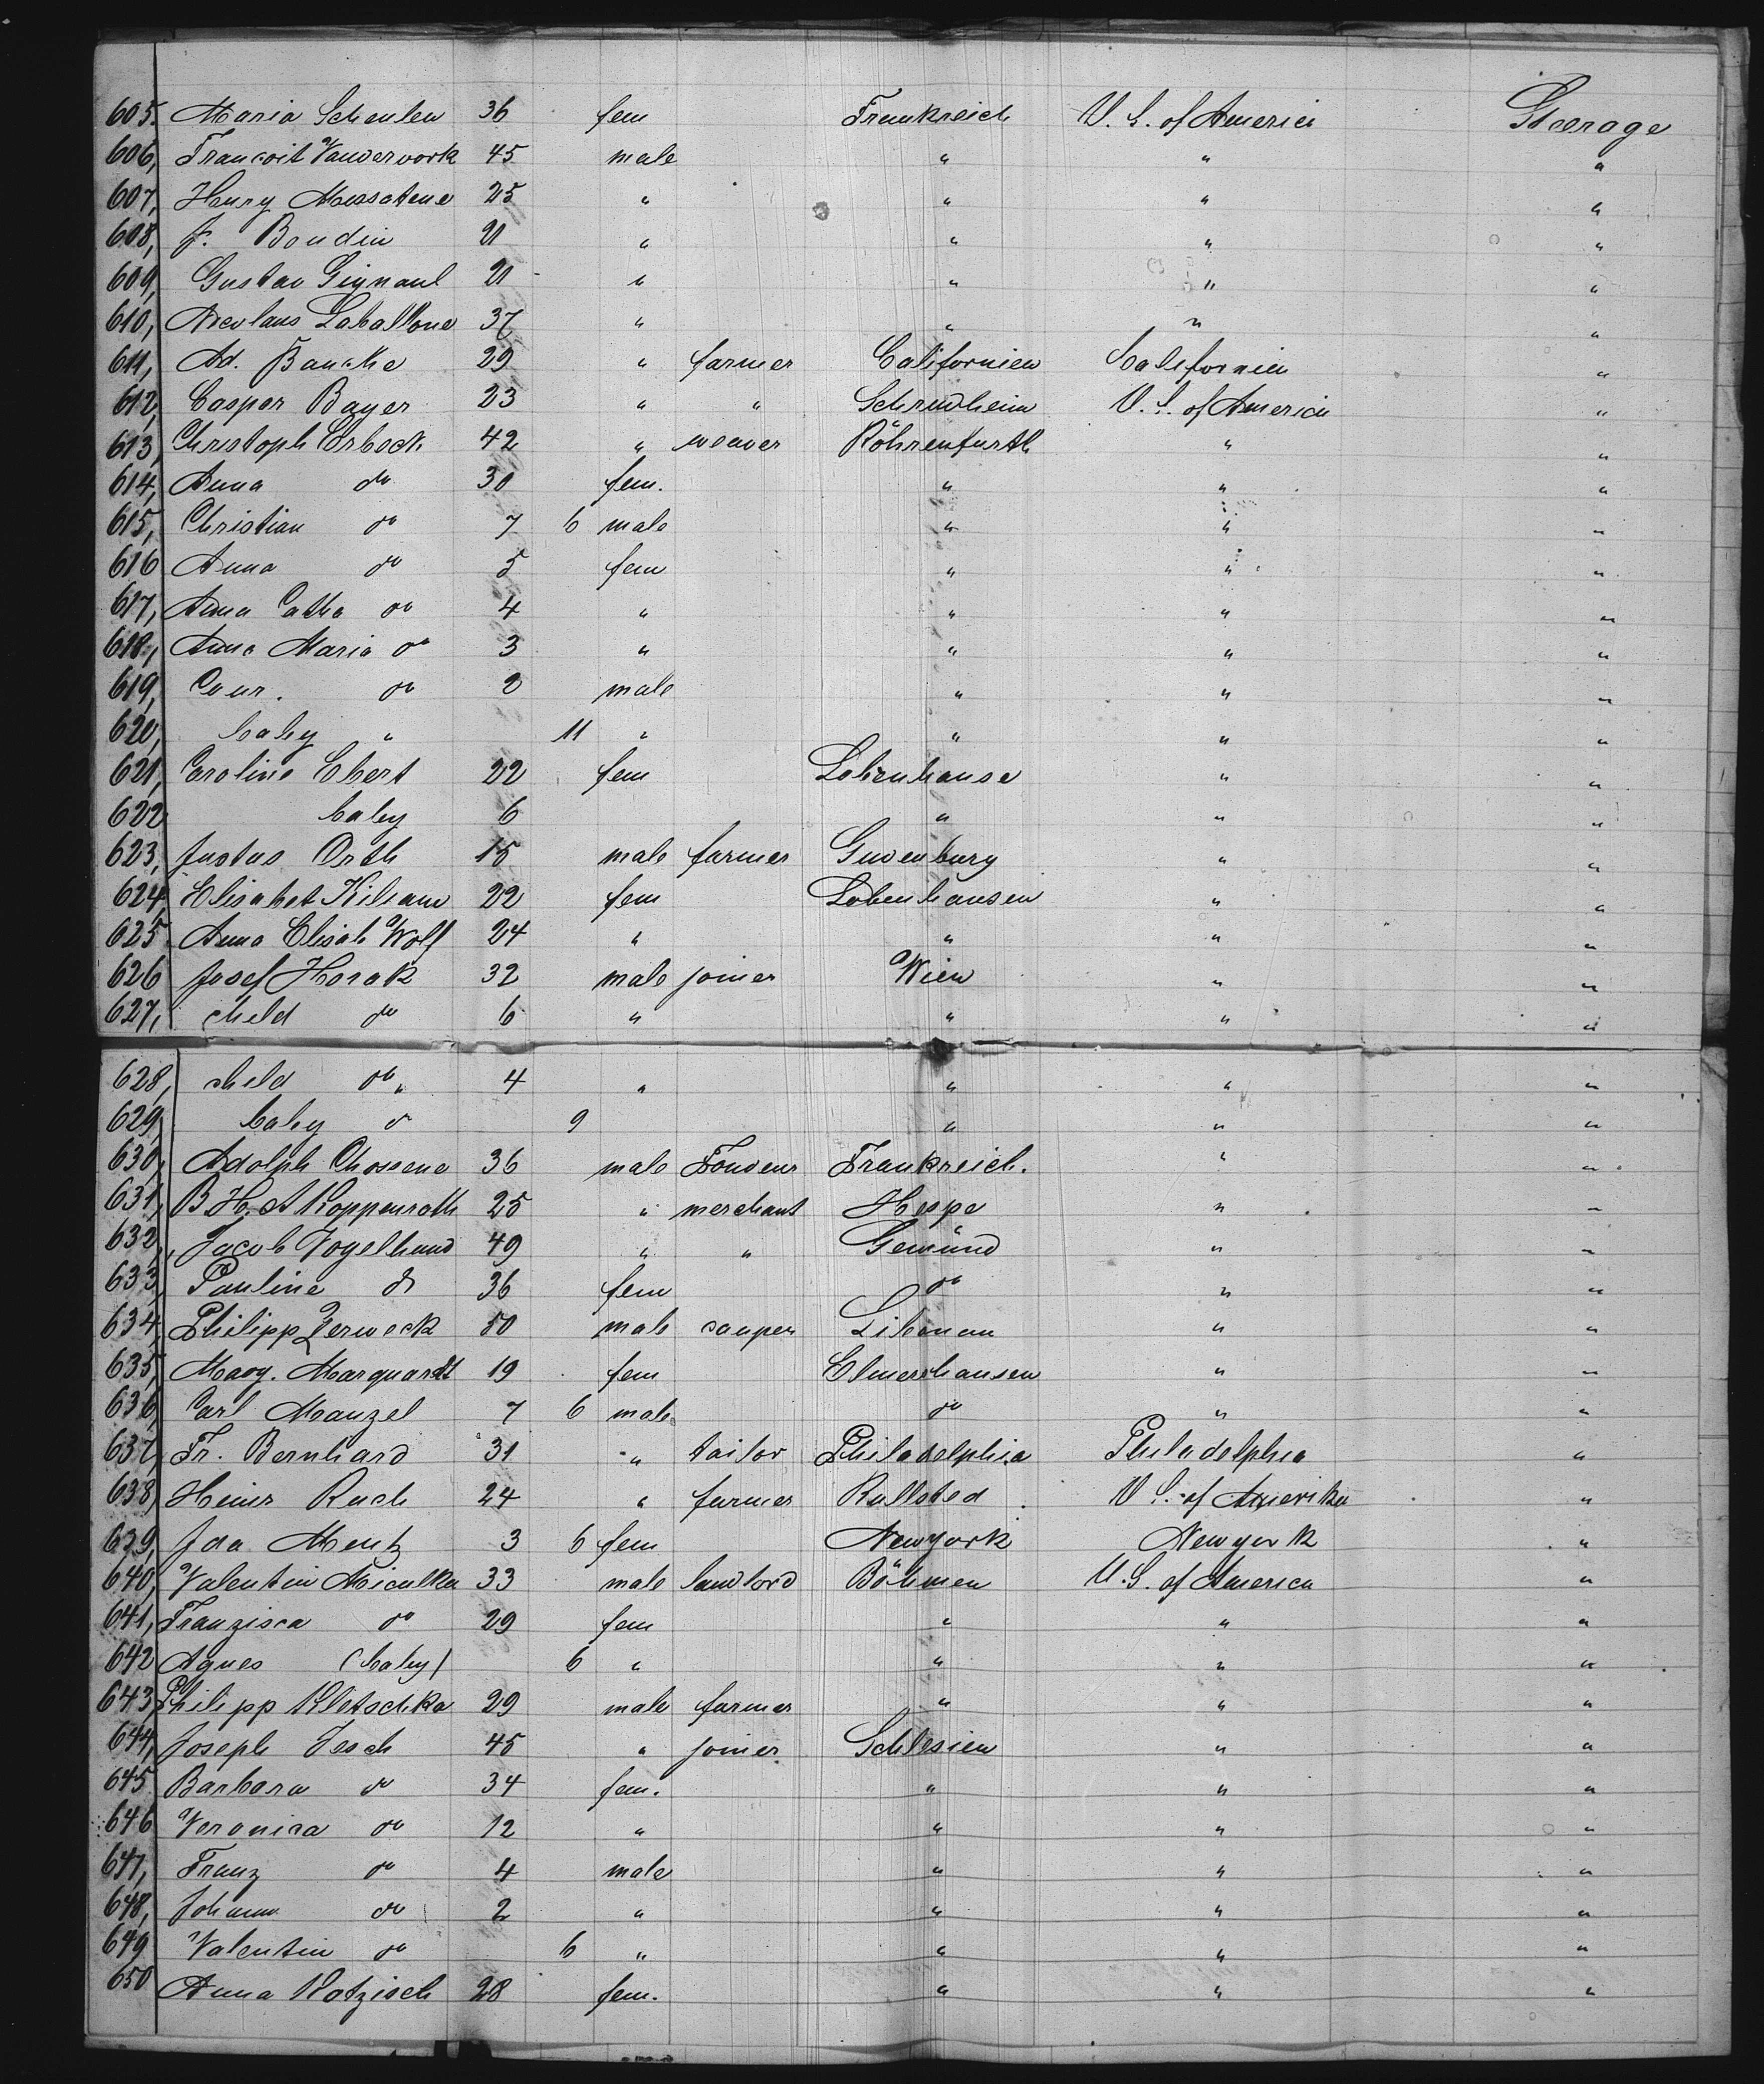 605. Maria Schenlen 36 fem Frankreich U. S. of America Steerage
606, Francoit Vandervork 45 male " " "
607, Henry Messatene 25 " " " "
608, J. Boudin 21 " " " "
609, Gustav Gignaul 21 " " " "
610, Nicolaus Laballone 37 " " " "
611, Ad. Bancke 29 " farmer Californien California "
612, Caspar Bayer 23 " " Schrudheim U. S. of America "
613, Christoph Erbeck 42 " weaver Röhrenfurth " "
614, Anna do 30 fem. " " "
615, Christian do 7 6 male " " "
616 Anna do 5 fem " " "
617, Anna Catha do 4 " " " "
618, Anna Maria do 3 " " " "
619, Conr. do 2 male " " "
620, baby " 11 " " " "
621, Caroline Ebert 22 fem Lobenhause " "
622 baby 6 " " "
623, Justus Orth 15 male farmer Gudenburg " "
624, Elisabet Kiliann 22 fem Lobenhausen " "
625 Anna Elisab Wolf 24 " " " "
626 Josef Horak 32 male joiner Wien " "
627, child do 6 " " " "
628, child do " 4 " " " "
629, baby do 9 " " "
630, Adolph Chossene 36 male Fondeur Frankreich. " "
631, B. H. A Koppenrath 25 " merchant Hespe " "
632, Jacob Vogelhund 49 " " Gemünd " "
633, Pauline do 36 fem do " "
634, Philipp Zerweck 50 male cauper Libanan " "
635, Marg. Marquardt 19 fem Elmershausen " "
636, Carl Manzel 7 6 male do " "
637, Fr. Bernhard 31 " tailor Philadelphia Philadelphia "
638, Heinr Ruch 24 " farmer Rullsted U. S. of Amerika "
639, Ida Mentz 3 6 fem Newyork Newyork "
640, Valentin Miculka 33 male landlord Böhmen U. S. of America "
641, Franzisca do 29 fem " " "
642 Agnes (baby) 6 " " " "
643, Philipp Kletschka 29 male farmer " " "
644, Joseph Tesch 45 " joiner Schlesien " "
645 Barbara do 34 fem. " " "
646 Veronica do 12 " " " "
647, Franz do 4 male " " "
648, Johann do 2 " " " "
649 Valentin do 6 " " " "
650 Anna Kotzisch 28 fem. " " "